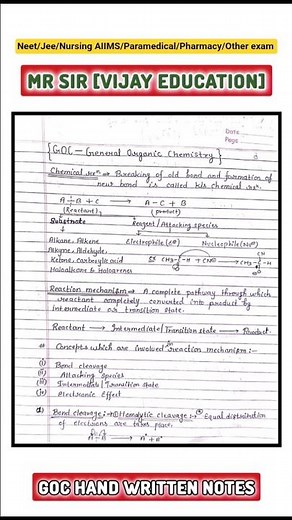 Neet/Jee/Nursing AIIMS/Paramedical/Pharmacy/Other exam
MR SIR [VIJAY EDUCATION]
Date
Page
{GOC - General Organic Chemistry}
Chemical rxn ⇒ Breaking of old bond and formation of
new bond is called his chemical rxn.
A-B + C → A-C + B
(Reactant) (product)
Substrate Reagent/Attacking species
Alkane, Alkene Electrophile (E⊕) Nucleophile (Nu⊖)
Alkyne, Aldehyde,
Ketone, Carboxylic acid
Haloalkane & Haloarenes
Reaction mechanism → A complete pathway through which
reactant completely converted into product by
intermediate or transition state.
Reactant → Intermediate/Transition state → Product
Concepts which are involved in reaction mechanism:-
(i) Bond cleavage
(ii) Attacking Species
(iii) Intermediate/Transition State
(iv) electronic Effect
Bond cleavage:→ (1) Homolytic cleavage:→ Equal distribution
of electrons are takes place.
A-B → A° + B°
GOC HAND WRITTEN NOTES